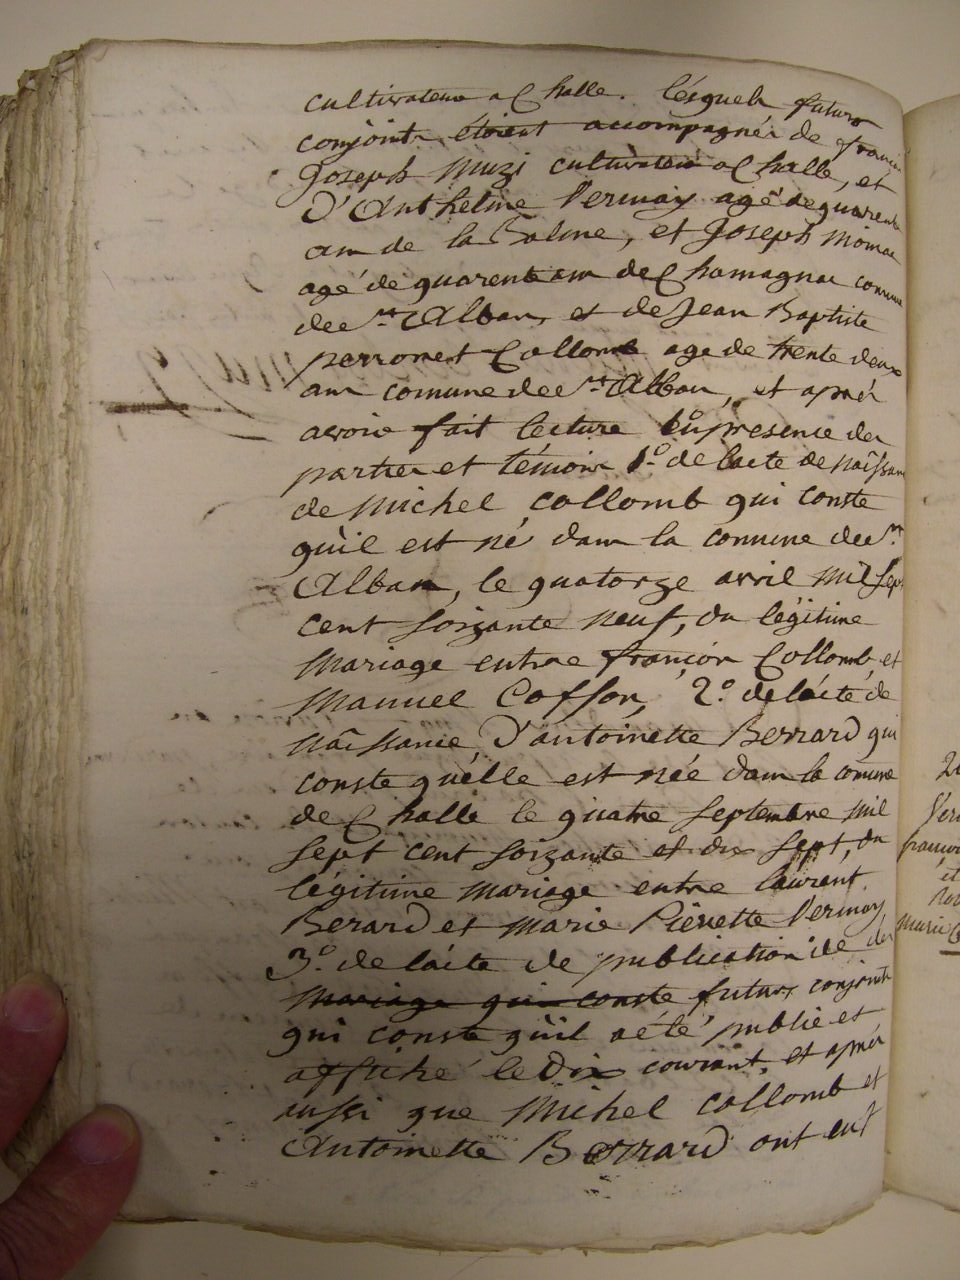 cultivateur a Challe. lésquels futurs
conjoints étoient accompagnés de francois
Joseph Muzi cultivateur a Challe, et
D'Anthelme Vermay agé de quarente
ans de la Balme, et Joseph
agé de quarente ans de Chamagnac comune
de St Alban, et de Jean Baptiste
perronet Collomb age de trente deux
ans comune de St Alban, et aprés
avoir fait lecture En presence des
parties et témoins 1o. de lacte de naîssance
de Michel collomb qui conste
qu'il est né dans la comune de St
Alban, le quatorze avril mil sept
cent soixante neuf, du légitime
mariage entre françois Collomb, et
Manuel Cosson, 2o. de lácte de
naîssance D'antoinette Berrard qui
conste qu'elle est née dans la comune
de Challe le quatre septembre mil
sept cent soixante et dix sept, du
légitime mariage entre laurent
Berard et Marie Piérrette Vermay
3o. de lácte de publication de des
mariage qui conste futurs conjoints
qui conste qu'il a été publié et
affiché le Dix courant, et aprés
aussi que Michel collomb et
Antoinette Berrard ont eut